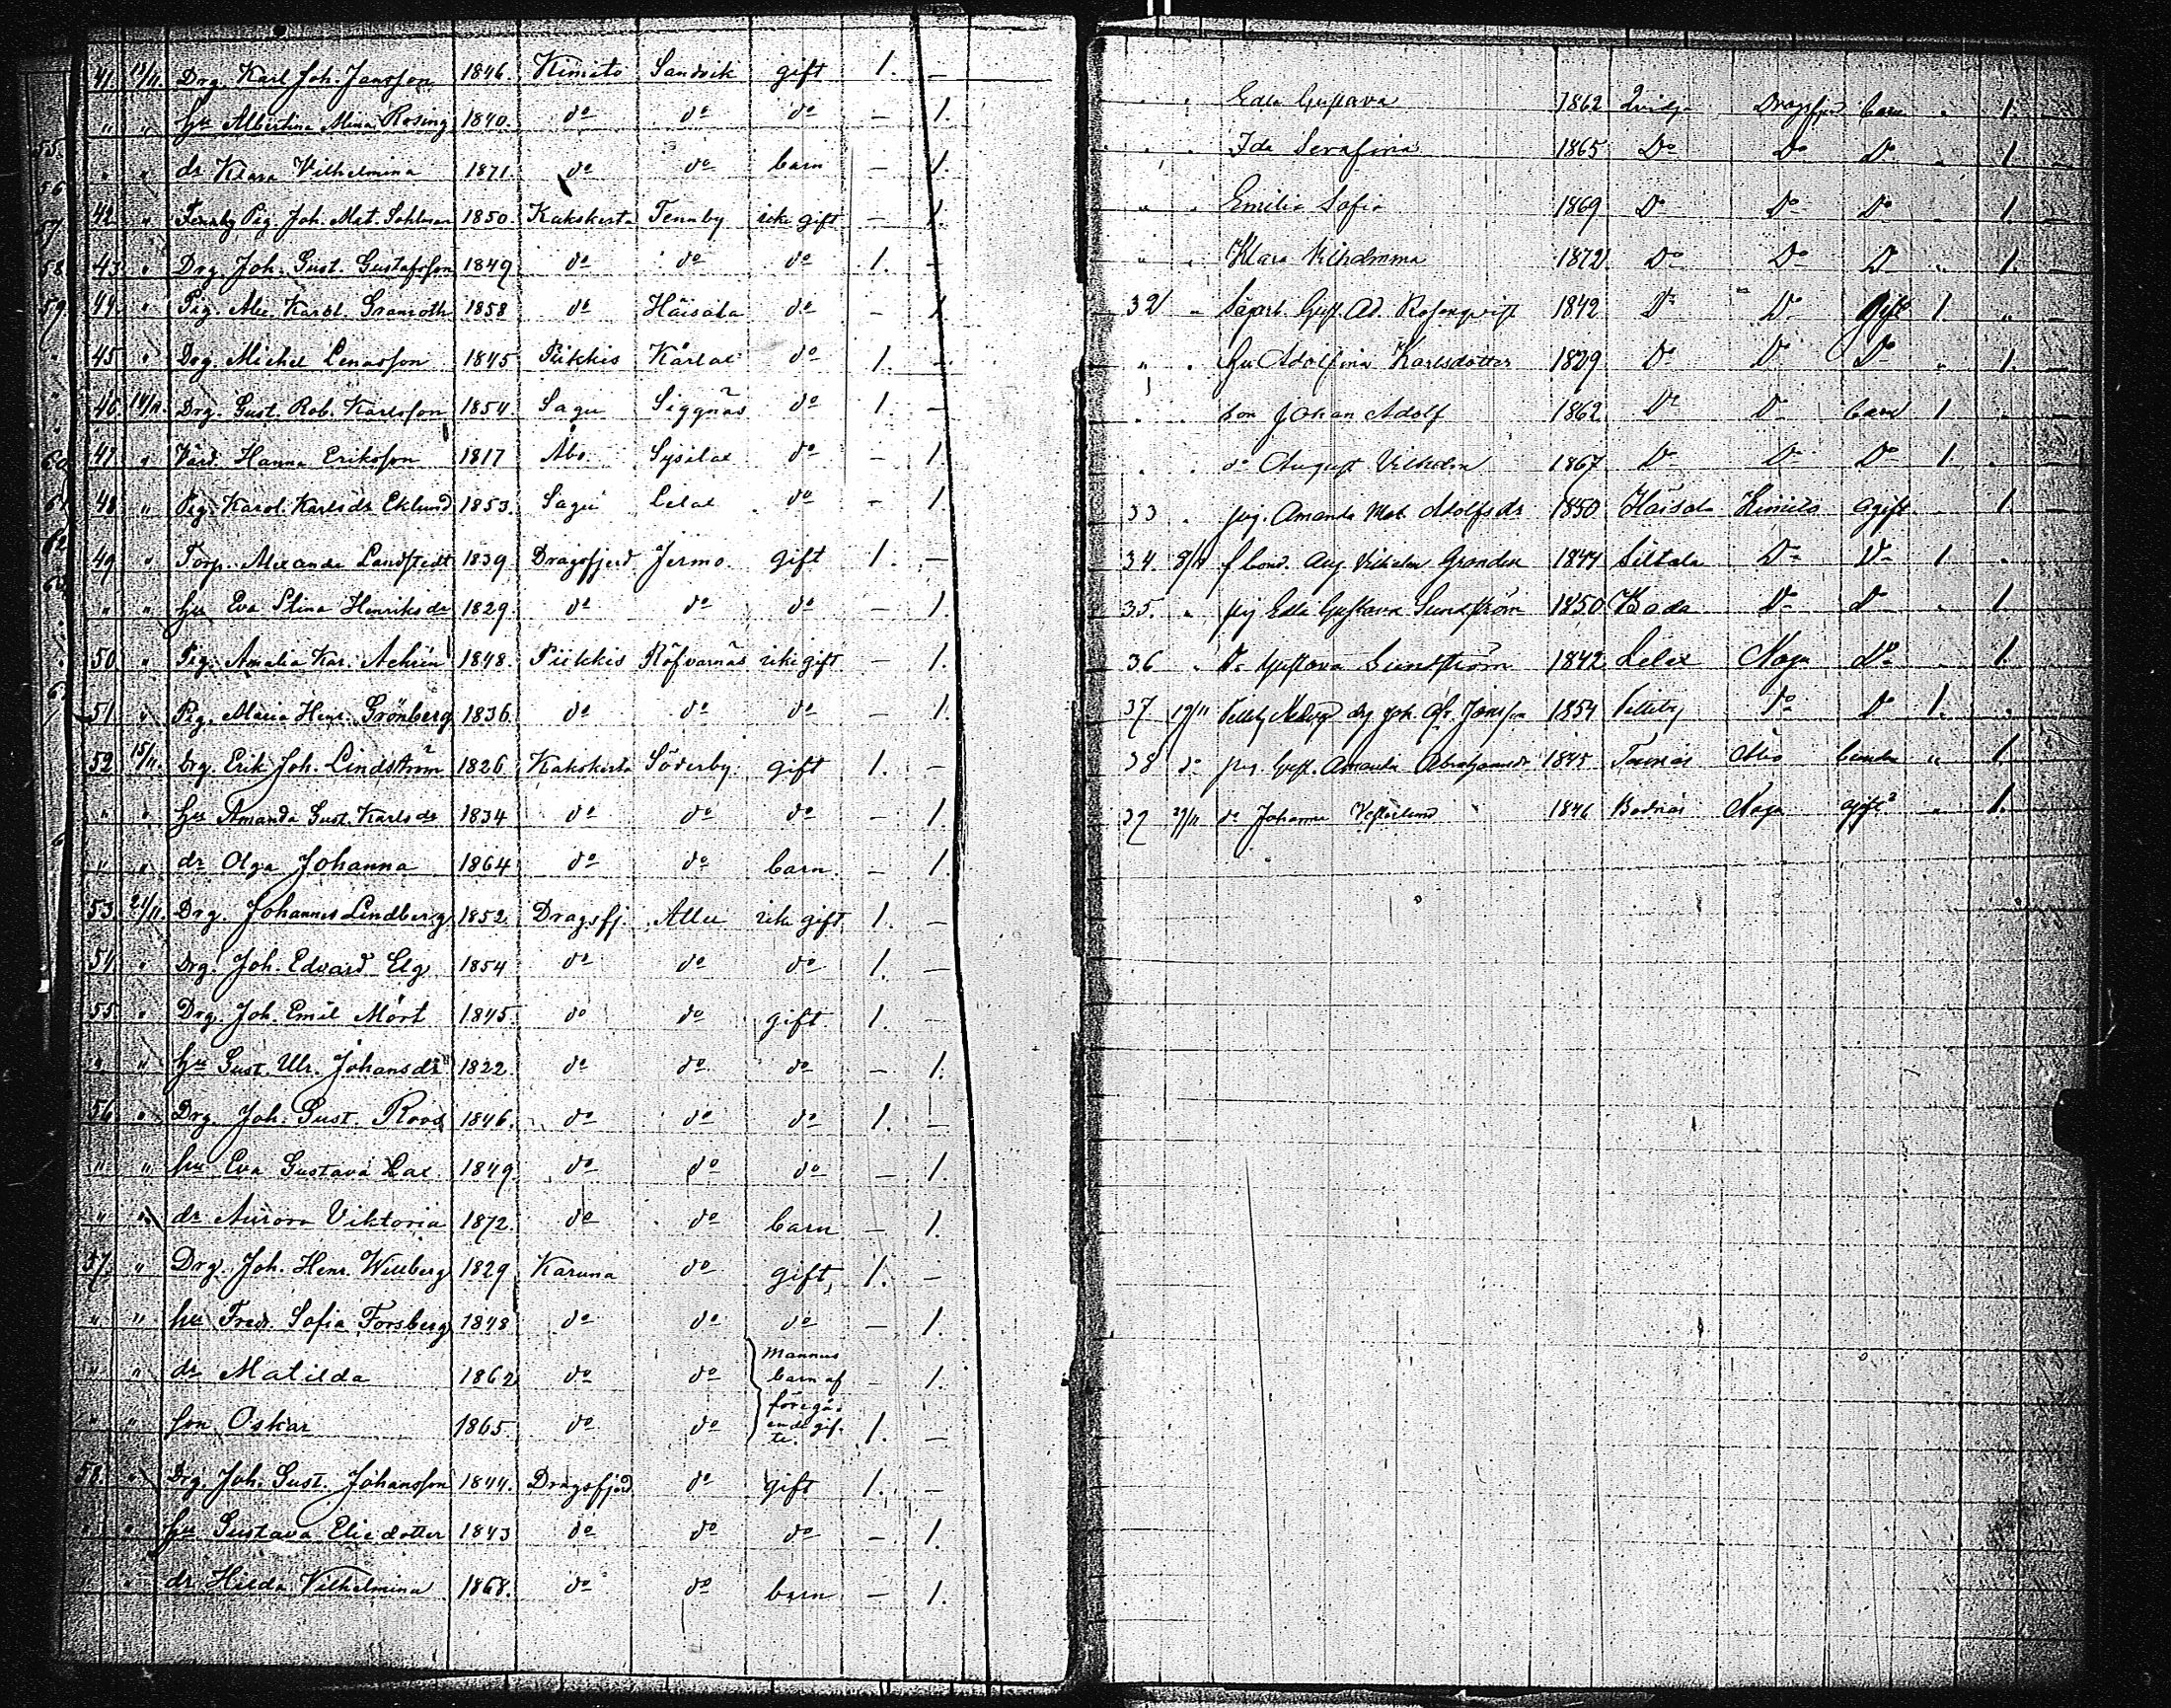 41. 13/11. Drg. Karl Joh. Jansson 1846. Kimito Sandvik gift 1. —
" " hu Albertina Mina Rosing 1840. do do do — 1.
" " dr Klara Vilhelmina 1871 do do barn — 1.
42 " Pig. Joh. Mat. Sohlman 1850. Kakskerta Tennby icke gift — 1.
43 " Drg. Joh. Gust. Gustafsson 1849 do do do 1. —
44 " Pig. Granroth 1858 do Häisala do — 1
45 " Drg. Michel Lenasson 1845 Piikkis do 1. —
46 14/11. Drg. Gust. Rob. Karlsson 1854 Sagu Siggnäs do 1. —
47 " Hanna Eriksson 1817 Åbo do — 1
48 " Pig. Karol. Karlsdr Eklund 1853. Sagu Lelax do — 1
49 " Torp. Alexander Landstedt 1839 Dragsfjerd Jermo gift 1. —
" " hu Eva Stina Henriksdr 1829. do do do — 1.
50 " Pig. Amalia Kar. 1848. Piikkis Röfvarnäs icke gift — 1.
51 " Pig. Maria Henr. Grönberg 1836. do do do — 1.
52 15/11. Drg. Erik Joh. Lindström 1826 Kakskerta Söderby gift 1. —
" " hu Amanda Gust. Karlsdr 1834 do do do — 1
" " dr Olga Johanna 1864 do do barn. — 1.
53. 21/11. Drg. Johannes Lindberg 1852 Dragsfj. icke gift 1. —
54 " Drg. Joh. Edvard Elg 1854 do do do 1. —
55 " Drg. Joh. Emil Mört 1845. do do gift 1. —
" " hu Gust. Ulr. Johansdr 1822 do do do — 1.
56 " Drg. Joh. Gust. Roos 1846. do do do 1. —
" " hu Eva Gustava Lax 1849. do do do — 1.
" " dr Aurora Viktoria 1872. do do barn — 1.
57. " Drg. Joh. Henr. Willberg 1829 Karuna do gift 1. —
" " hu Fredr. Sofia Forsberg 1848 do do do — 1.
" " dr Matilda 1862 do do Mannens barn af — 1.
" " son Oskar 1865. do do föregående gifte. 1. —
58. " Drg. Joh. Gust. Johansson 1844. Dragsfjerd do gift 1. —
" " hu Gustava Eliedotter 1843 do do do — 1.
" " dr Hilda Vilhelmina 1868. do do barn — 1.
" " Edla Gustava 1862 Dragsfjerd barn " 1. —
" " Ida Serafina 1865 Do Do Do " 1 —
" " Emilia Sofia 1869 Do Do Do " 1 —
" " Klara Vilhelmina 1872 Do Do Do " 1. —
32 " Gust. Ad. Rosenqvist 1842 Do Do Gift 1 "
" " hu Adolfina Karlsdotter 1829 Do Do Do " 1. —
" " son Johan Adolf 1862 Do Do barn 1 " —
" " do August Vilhelm 1867 Do Do Do 1. " —
33 " pig. Amanda Mat. Adolfsdr 1850 Häisala Kimito ogift " 1 —
34. Aug. Vilhelm Grandell 1844 Siltala Do Do 1 "
35. " pig Edla Gustava Sundström 1850 Do Do " 1. —
36 " Do Gustava Sundström 1842 Lelax Nagu Do " 1.
37 19/11 Joh. Jansson 1854 Do Do 1. "
38 do pig Gust. Amanda Abrahamsdr 1845 Åbo " 1
39 29/11 do Johanna Vesterlund 1846 Bodnäs Nagu ogift " 1.